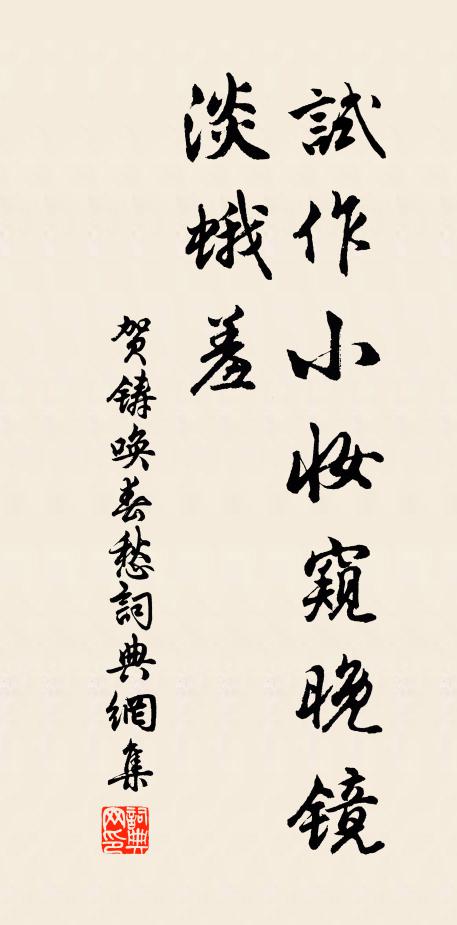 試作小妝窺晚镜
淡蛾羞
贺鑄唤春愁詞典網集
詞典
网印